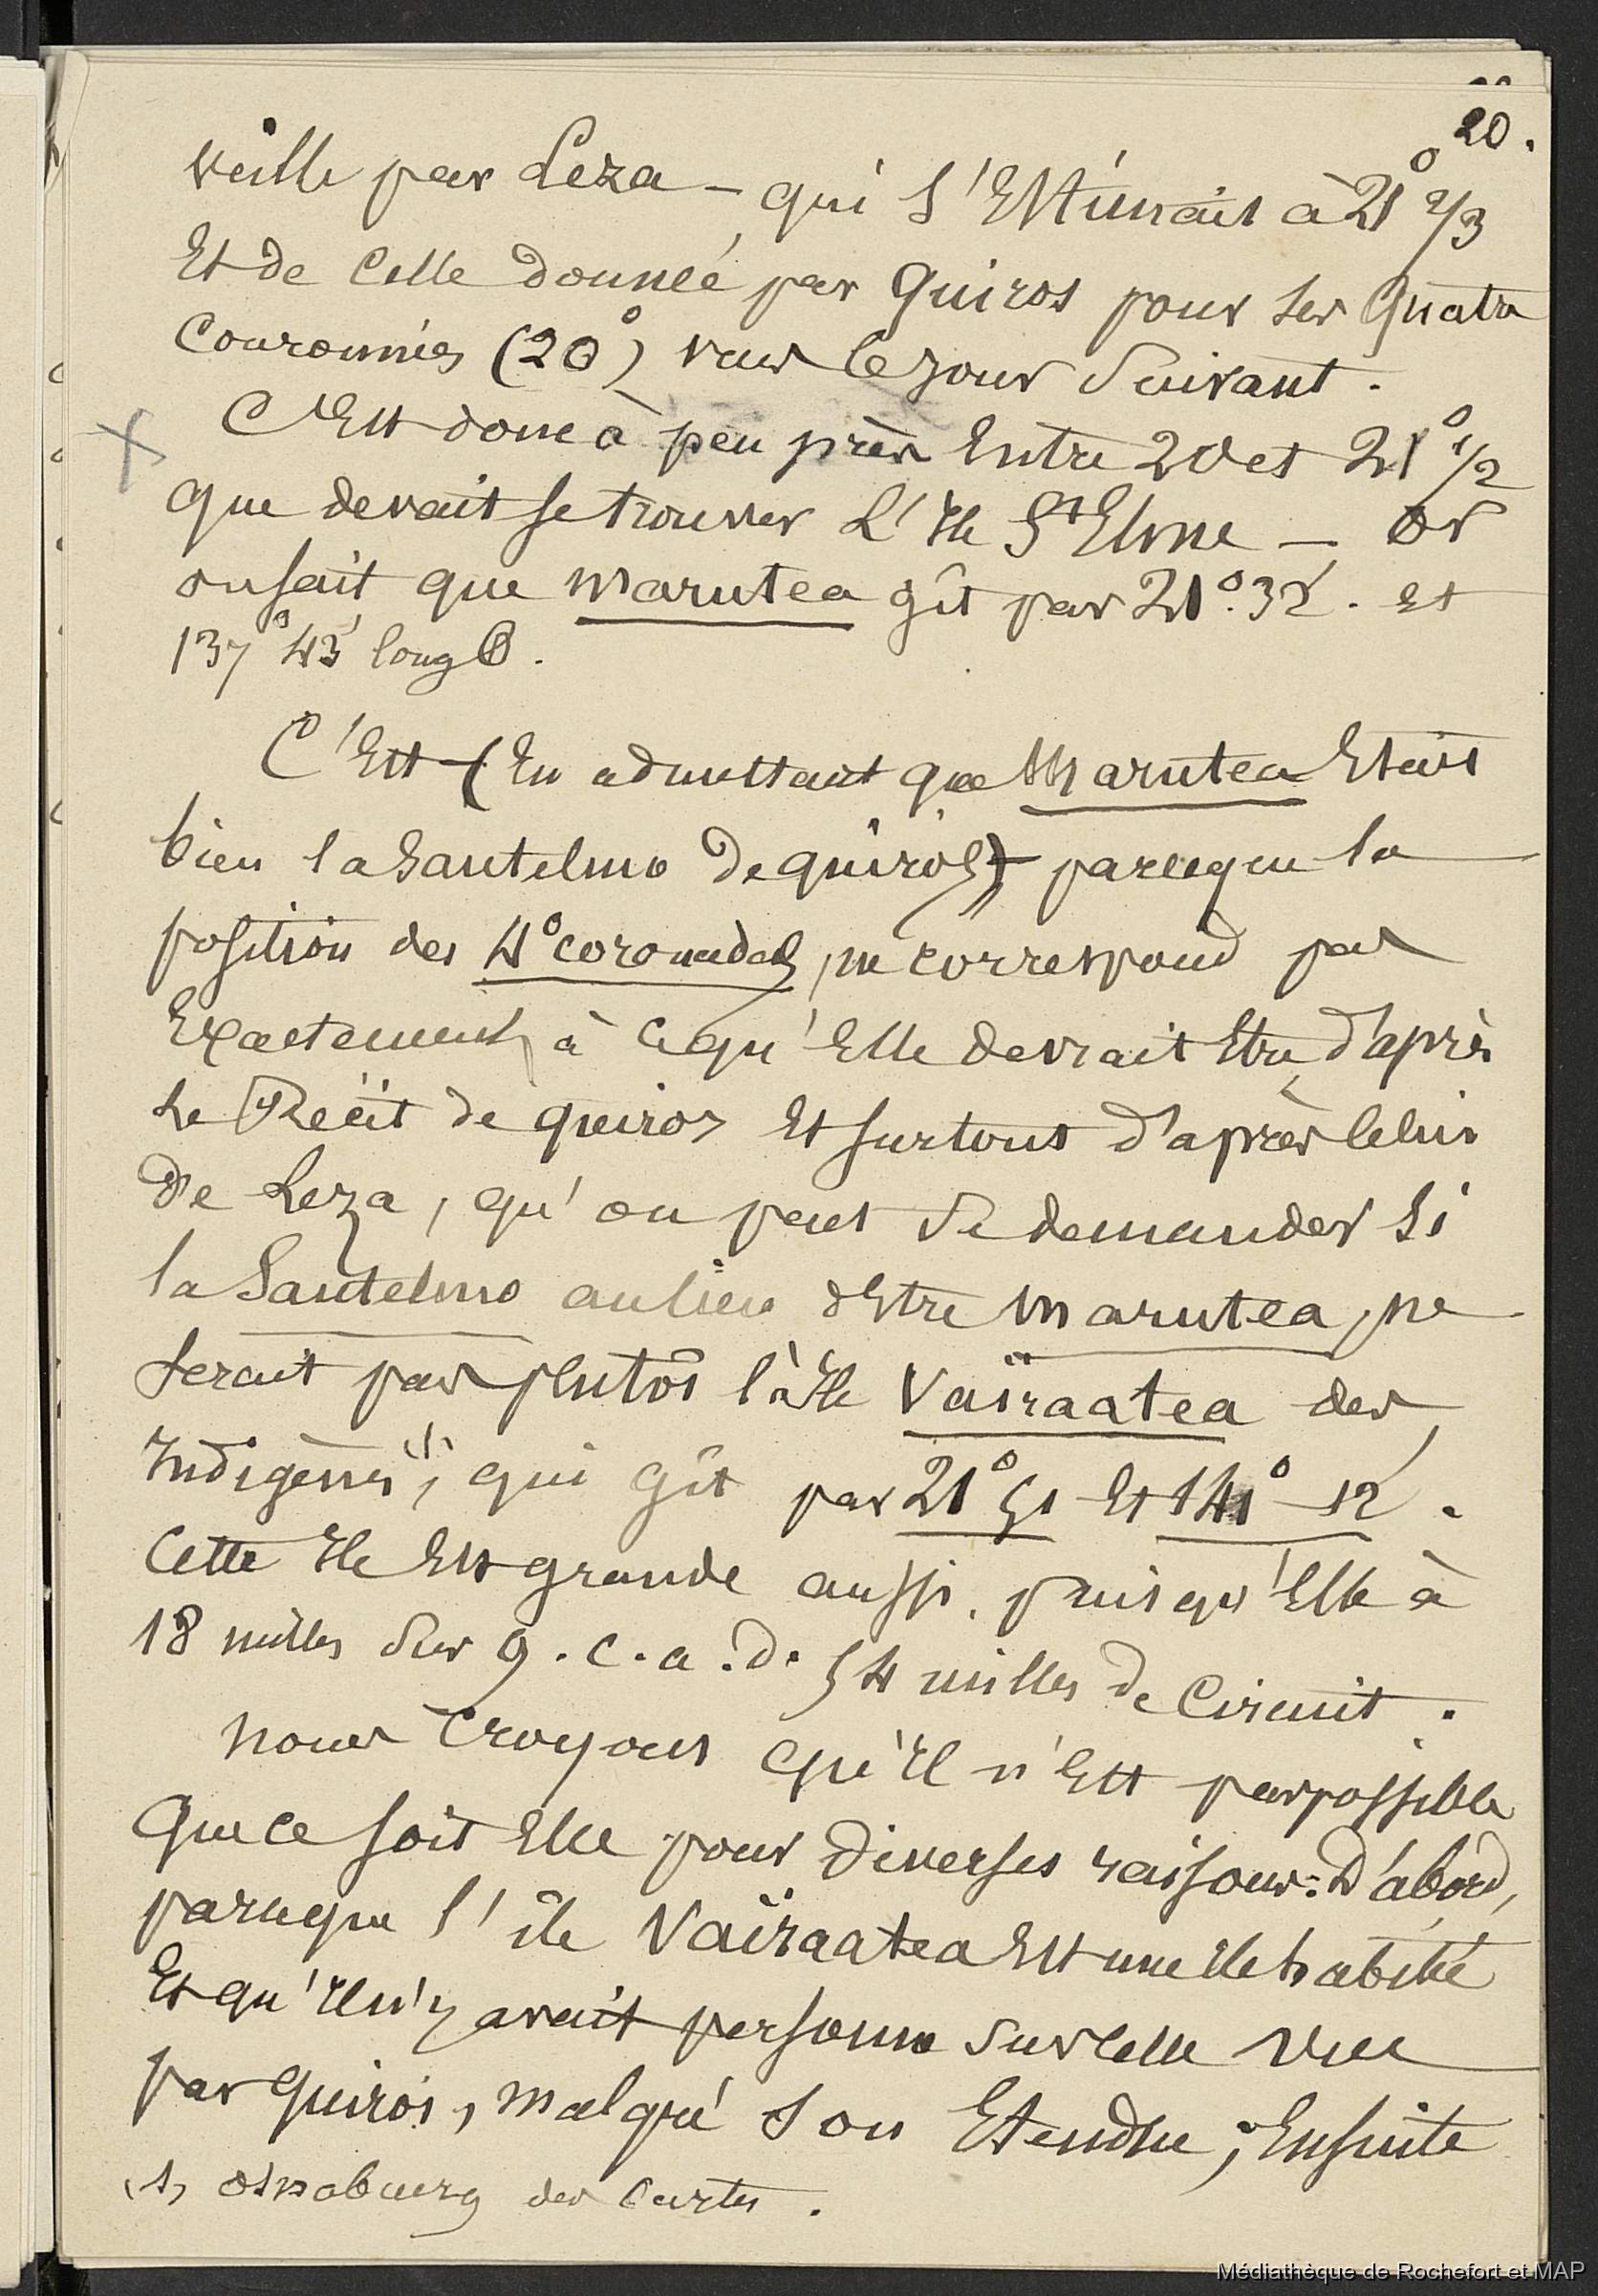 20.
veille par Leza - qui l'Estimait à 21° 2/3
Et de Celle donnée par Quiros pour les Quatre
Couronnées (20°) vues le jour Suivant.
C'Est donc à peu près Entre 20 et 21° 1/2
que devait se trouver L'Ile St Elme - or
on sait que Marutea gît par 21°.32'. et
137° 43' long O.
C'Est (En admettant que Marutea Etait
bien la Santelmo de quiros) parceque la
position des 4° coronadas, ne correspond pas
Exactement, à Cequ'Elle devrait Etre d'après
Le Récit de quiros Et surtout d'après Celui
De Leza, qu'on peut Se demander Si
la Santelmo aulieu d'Etre Marutea, ne
Serait pas plutôt l'Ile Vaïraatea des
Indigènes (1), qui gît par 21° 51 Et 141° - 12'.
Cette Ile Est grande aussi, puisqu'Elle à
18 milles Sur 9. C.a.d. 54 milles de Circuit.
Nous Croyons qu'Il n'Est pas possible
Que ce soit Elle pour diverses raisons: D'abord,
parceque l'île Vaïraatea Est une Ile habitée
Et qu'Il n'y avait personne Sur Celle vue
par Quiros, malgré Son Etendue; Ensuite
(1) Osnabuerg des Cartes.
Médiathèque de Rochefort et MAP